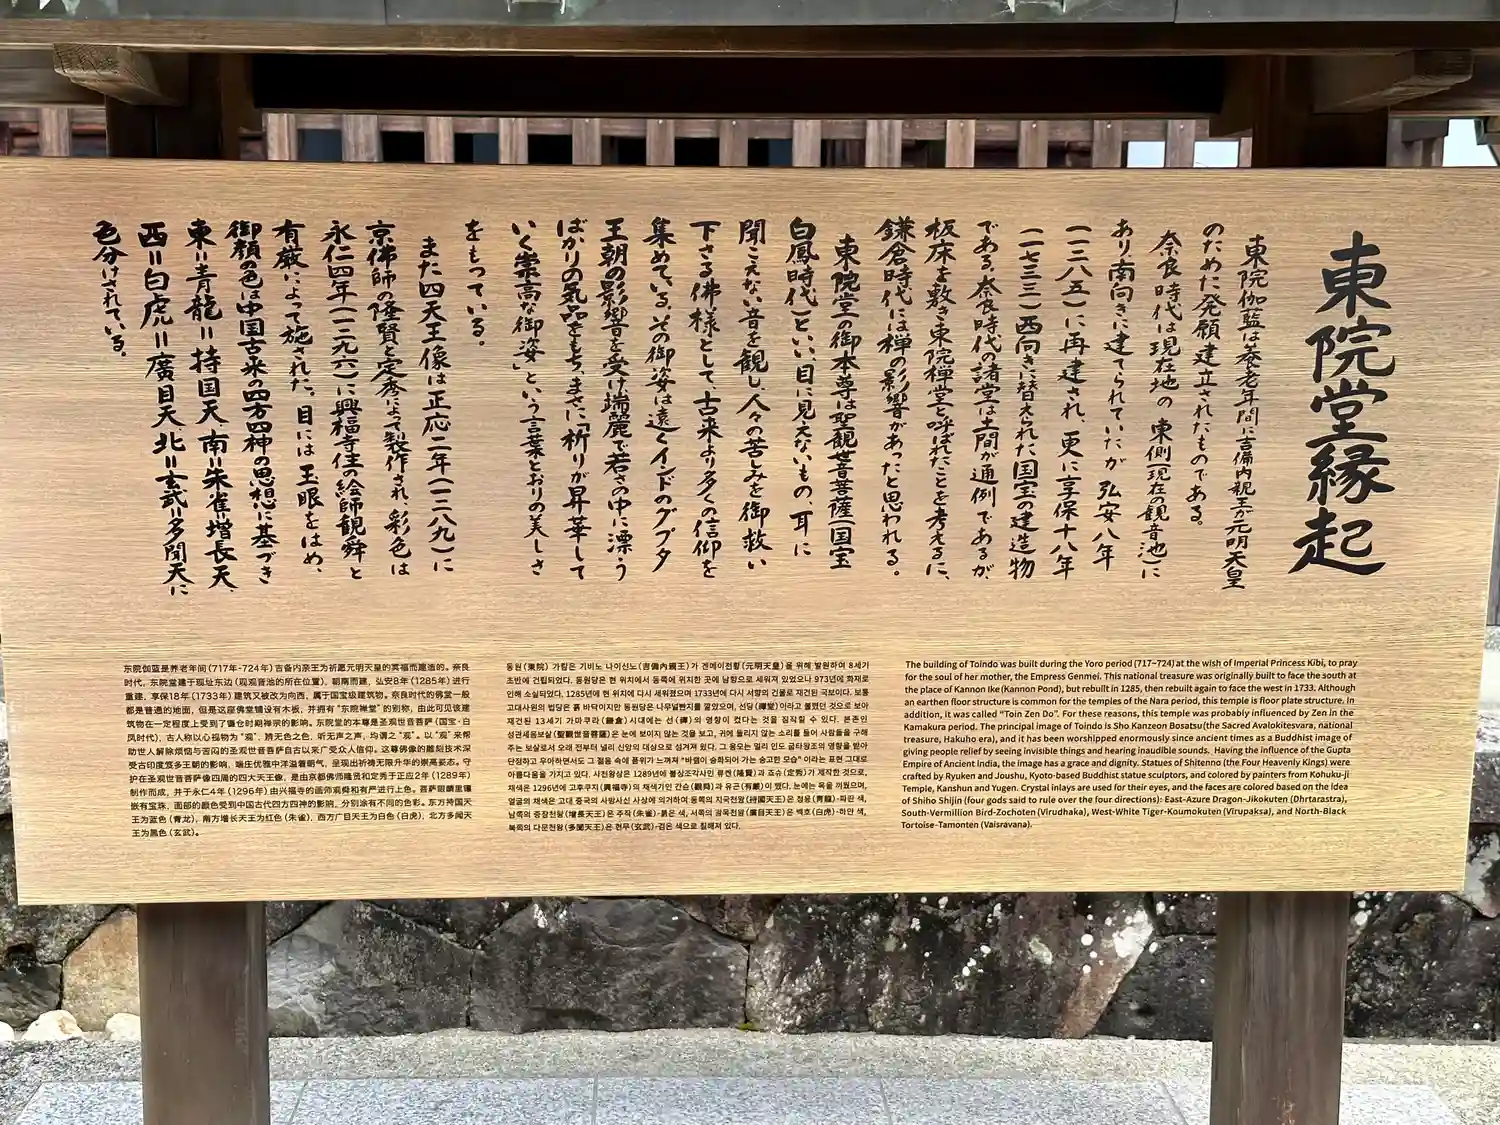 東院堂縁起
東院伽藍は養老年間に吉備内親王が元明天皇
のために発願建立されたものである。
奈良時代は現在地の東側(現在の観音池)に
あり南向きに建てられていたが弘安八年
(一二八五)に再建され、更に享保十八年
(一七三三)西向きに替えられた国宝の建造物
である。奈良時代の諸堂は土間が通例であるが、
板床を敷き東院禅堂と呼ばれたことを考えるに、
鎌倉時代には禅の影響があったと思われる。
東院堂の御本尊は聖観世音菩薩(国宝
白鳳時代)といい、目に見えないもの、耳に
聞こえない音を観し、人々の苦しみを御救い
下さる佛様として、古来より多くの信仰を
集めている。その御姿は遠くインドのグプタ
王朝の影響を受け端麗で若さの中に漂う
ばかりの気品をもち、まさに「祈りが昇華して
いく崇高な御姿」という言葉どおりの美しさ
をもっている。
また四天王像は正応二年(一二八九)に
京佛師の隆賢と定秀によって製作され、彩色は
永仁四年(一二九六)に興福寺住の絵師観舜と
有厳によって施された。目には玉眼をはめ、
御顔の色は中国古来の四方四神の思想に基づき
東=青龍=持国天、南=朱雀=増長天、
西=白虎=廣目天、北=玄武=多聞天に
色分けされている。
东院伽蓝是养老年间(717年-724年)吉备内亲王为祈愿元明天皇的冥福而建造的。奈良
时代,东院堂建于现址东边(现观音池的所在位置),朝南而建,弘安8年(1285年)进行
重建,享保18年(1733年)建筑又被改为向西,属于国宝级建筑物。奈良时代的佛堂一般
都是普通的地面,但是这座佛堂铺设有木板,并拥有"东院禅堂"的别称,由此可见该建
筑物在一定程度上受到了镰仓时期禅宗的影响。东院堂的本尊是圣观世音菩萨(国宝-白
凤时代),古人称以心视物为"观",辨无色之色、听无声之声,均谓之"观"。以"观"来帮
助世人解除烦恼与苦闷的圣观世音菩萨自古以来广受众人信仰。这尊佛像的雕刻技术深
受古印度笈多王朝的影响,端庄优雅中洋溢着朝气,呈现出祈祷无限升华的崇高姿态。守
护在圣观世音菩萨像四周的四大天王像,是由京都佛师隆贤和定秀于正应2年(1289年)
制作而成,并于永仁4年(1296年)由兴福寺的画师观舜和有严进行上色。菩萨眼睛里镶
嵌有宝珠,面部的颜色受到中国古代四方四神的影响,分别涂有不同的色彩。东方持国天
王为蓝色(青龙),南方增长天王为红色(朱雀),西方广目天王为白色(白虎),北方多闻天
王为黑色(玄武)。
동원(東院) 가람은 기비노 나이신노(吉備内親王)가 겐메이천황(元明天皇)을 위해 발원하여 8세기
초반에 건립되었다. 동원당은 현 위치에서 동쪽에 위치한 곳에 남향으로 세워져 있었으나 973년에 화재로
인해 소실되었다. 1285년에 현 위치에 다시 세워졌으며 1733년에 다시 서향의 건물로 재건된 국보이다. 보통
고대사원의 법당은 흙 바닥이지만 동원당은 나무널빤지를 깔았으며, 선당(禪堂)이라고 불렸던 것으로 보아
재건된 13세기 가마쿠라(鎌倉)시대에는 선(禪)의 영향이 컸다는 것을 짐작할 수 있다. 본존인
성관세음보살(聖觀世音菩薩)은 눈에 보이지 않는 것을 보고, 귀에 들리지 않는 소리를 들어 사람들을 구해
주는 보살로서 오래 전부터 널리 신앙의 대상으로 섬겨져 왔다. 그 용모는 멀리 인도 굽타왕조의 영향을 받아
단정하고 우아하면서도 그 젊음 속에 품위가 느껴져 "바램이 승화되어 가는 숭고한 모습" 이라는 표현 그대로
아름다움을 가지고 있다. 사천왕상은 1289년에 불상조각사인 류켄(隆賢)과 죠슈(定秀)가 제작한 것으로,
채색은 1296년에 고후쿠지(興福寺)의 채색가인 간슌(觀舜)과 유곤(有嚴)이 했다. 눈에는 옥을 끼웠으며,
얼굴의 채색은 고대 중국의 사방사신 사상에 의거하여 동쪽의 지국천왕(持國天王)은 청룡(靑龍)-파란 색,
남쪽의 증장천왕(增長天王)은 주작(朱雀)-붉은 색, 서쪽의 광목천왕(廣目天王)은 백호(白虎)-하얀 색,
북쪽의 다문천왕(多聞天王)은 현무(玄武)-검은 색으로 칠해져 있다.
The building of Toindo was built during the Yoro period (717-724) at the wish of Imperial Princess Kibi, to pray
for the soul of her mother, the Empress Genmei. This national treasure was originally built to face the south at
the place of Kannon Ike (Kannon Pond), but rebuilt in 1285, then rebuilt again to face the west in 1733. Although
an earthen floor structure is common for the temples of the Nara period, this temple is floor plate structure. In
addition, it was called "Toin Zen Do". For these reasons, this temple was probably influenced by Zen in the
Kamakura period. The principal image of Toindo is Sho Kanzeon Bosatsu(the Sacred Avalokitesvara, national
treasure, Hakuho era), and it has been worshipped enormously since ancient times as a Buddhist image of
giving people relief by seeing invisible things and hearing inaudible sounds. Having the influence of the Gupta
Empire of Ancient India, the image has a grace and dignity. Statues of Shitenno (the Four Heavenly Kings) were
crafted by Ryuken and Joushu, Kyoto-based Buddhist statue sculptors, and colored by painters from Kohuku-ji
Temple, Kanshun and Yugen. Crystal inlays are used for their eyes, and the faces are colored based on the Idea
of Shiho Shijin (four gods said to rule over the four directions): East-Azure Dragon-Jikokuten (Dhrtarastra),
South-Vermillion Bird-Zochoten (Virudhaka), West-White Tiger-Koumokuten (Virupaksa), and North-Black
Tortoise-Tamonten (Vaisravana).